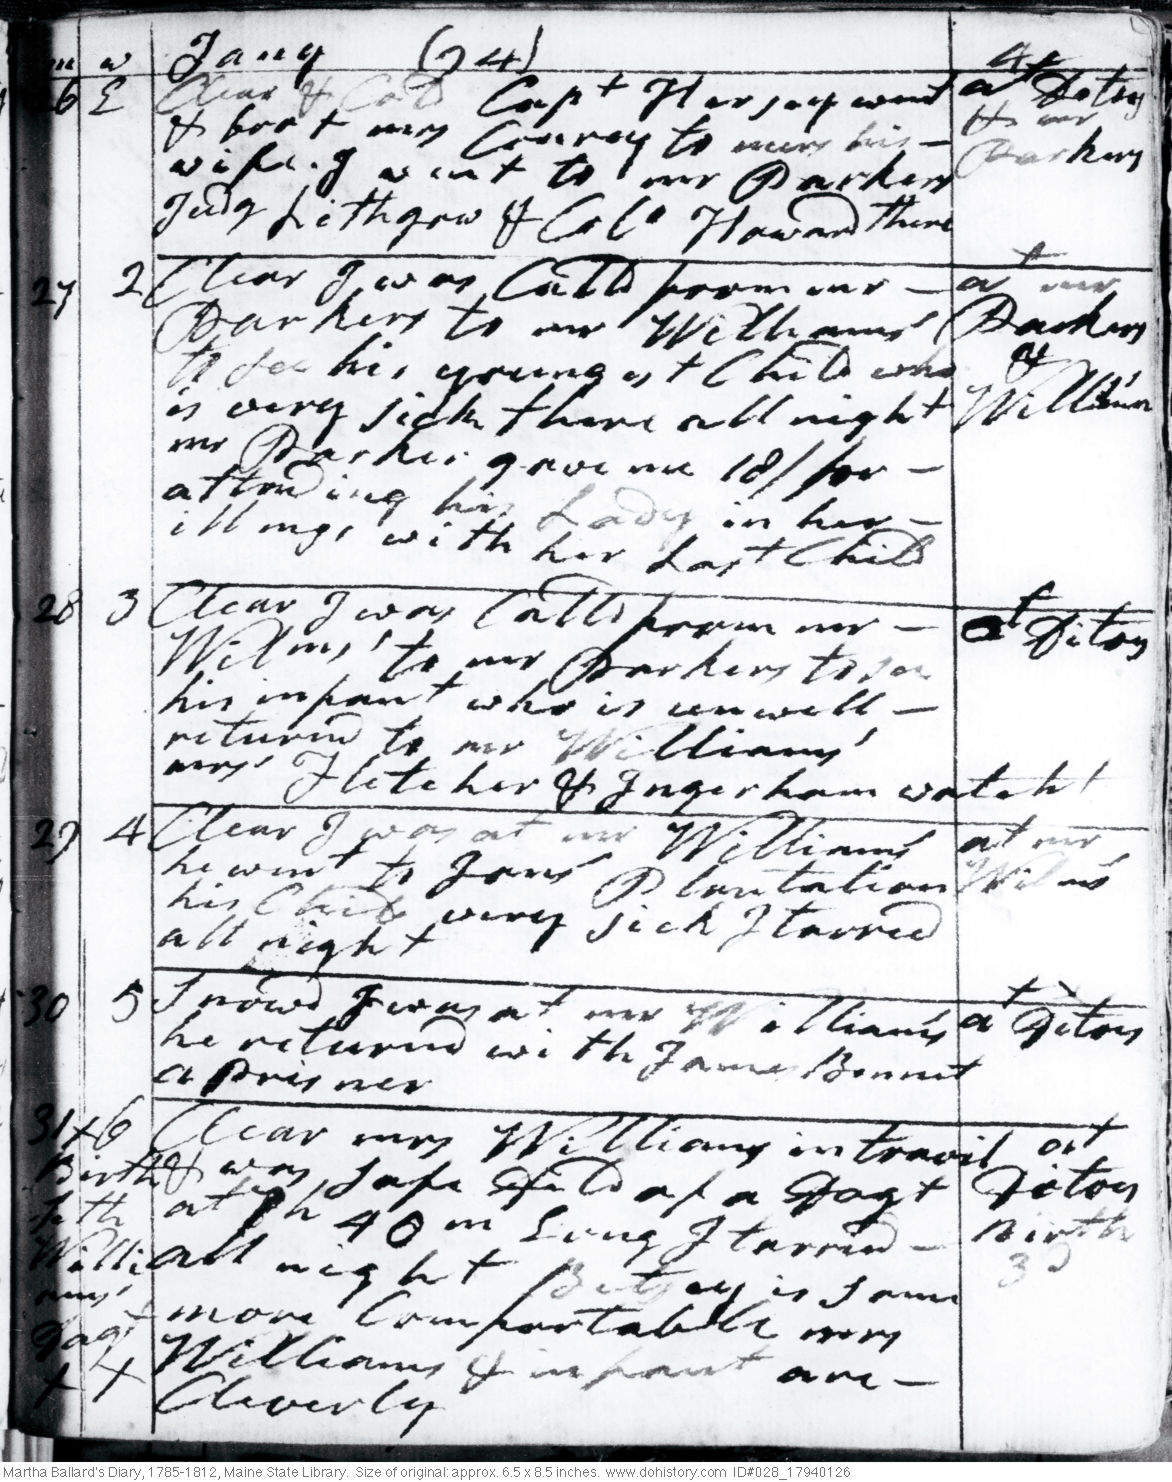 m w Jany (94)
26 E Clear & Cold Capt Hersey went at Ditoes
& brot mrs Conrey to nurs his — & mr
wife. I went to mr Parkers Parkers
Judg Lithgow & Colo Howard there
27 2 Clear I was Calld from mr — at mr
Parkers to mr Williams' Parkers
to see his youngest Child who &
is very sick there all night William's
mr Parker gave me 18/ for —
attending his Lady in her —
illness with her Last Child
28 3 Clear I was Calld from mr — at Ditoes
Wilms' to mr Parkers to see
his infant who is unwell —
returnd to mr Williams'
mrs' Fletcher & Ingerham watcht
29 4 Clear I was at mr Williams at mr
he went to Jons' Plantation Wilms'
his Child very sick I tarred
all night
30 5 Snowd I was at mr William's at Ditoes
he returnd with James Bonnet
a prisner
31 x 6 Clear mrs Williams in travil at
Birth & was safe dild of a Dagt Ditoes
Seth at 7h 40m Evng I tarrid — Birth
Willi all night Betsey is some 3d
ams' more Comfortable mrs
Dagt Williams & infant are —
x x Cleverly
Martha Ballard's Diary, 1785-1812, Maine State Library. Size of original: approx. 6.5 x 8.5 inches. www.dohistory.com ID#028_17940126